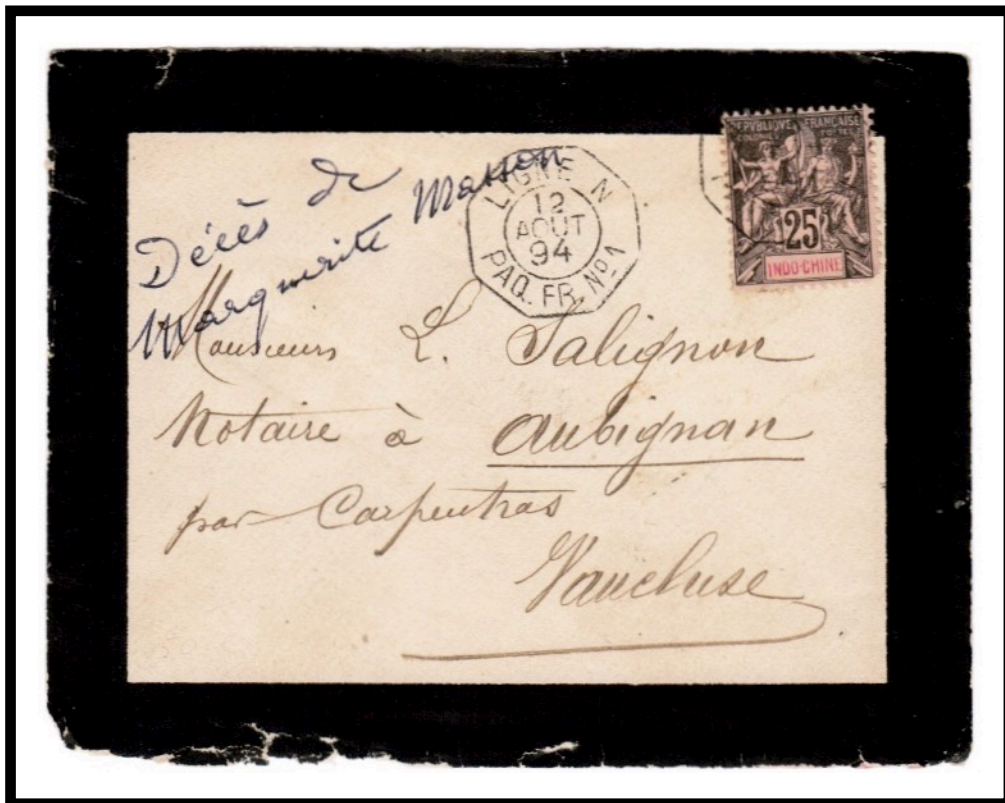 Décès de
Marguerite Masson
LIGNE N
12
AOUT
94
PAQ. FR. Nº 1
REPVBLIQVE FRANÇAISE
COLONIES POSTES
25
INDO-CHINE
Monsieur L. Salignon
Notaire à Aubignan
par Carpentras
Vaucluse